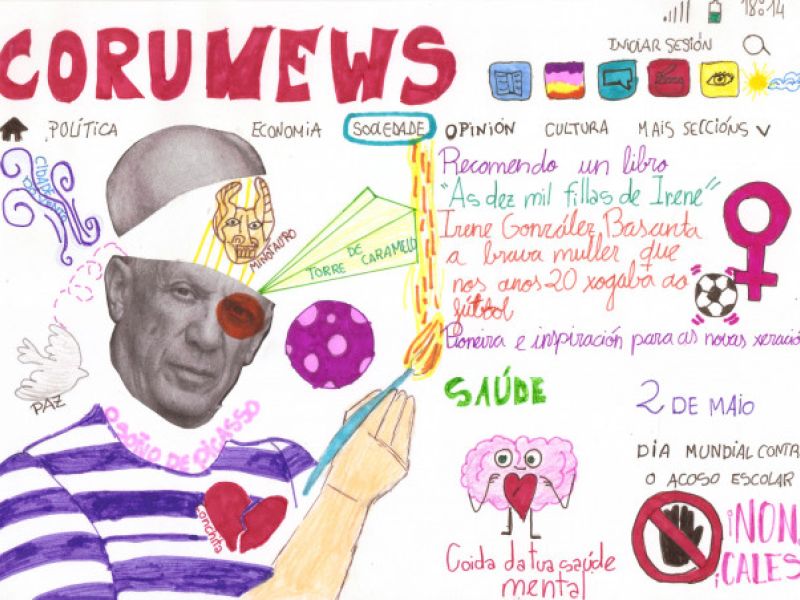 18:14
CORUNEWS
INICIAR SESIÓN
POLÍTICA ECONOMIA SOCIEDADE OPINIÓN CULTURA MAIS SECCIÓNS
CIDADE
MINOTAURO
TORRE DE CARAMELO
PAZ
O SOÑO DE PICASSO
Conchita
Recomendo un libro
"As dez mil fillas de Irene"
Irene González Basanta
a brava muller que
nos anos 20 xogaba ao
fútbol
Pioneira e inspiración para as novas xeración
SAÚDE
Coida da tua saúde
mental
2 DE MAIO
DIA MUNDIAL CONTRA
O ACOSO ESCOLAR
¡NON
CALES